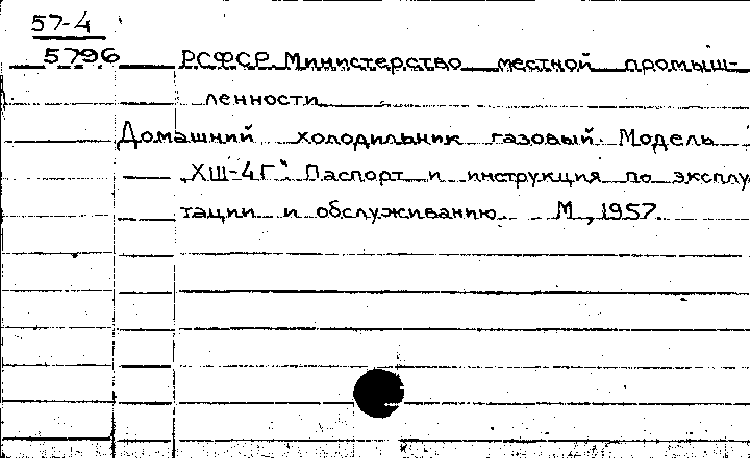 57-4
5796 РСФСР. Министерство местной промыш-
ленности
Домашний холодильник газовый. Модель
„ХШ-4Г". Паспорт и инструкция по эксплу
тации и обслуживанию. М., 1957.